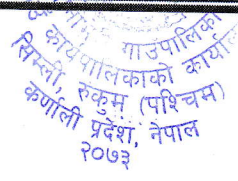 गाउँपालिका
कार्यपालिकाको कार्यालय
सिम्ली, रुकुम (पश्चिम)
कर्णाली प्रदेश, नेपाल
२०७३